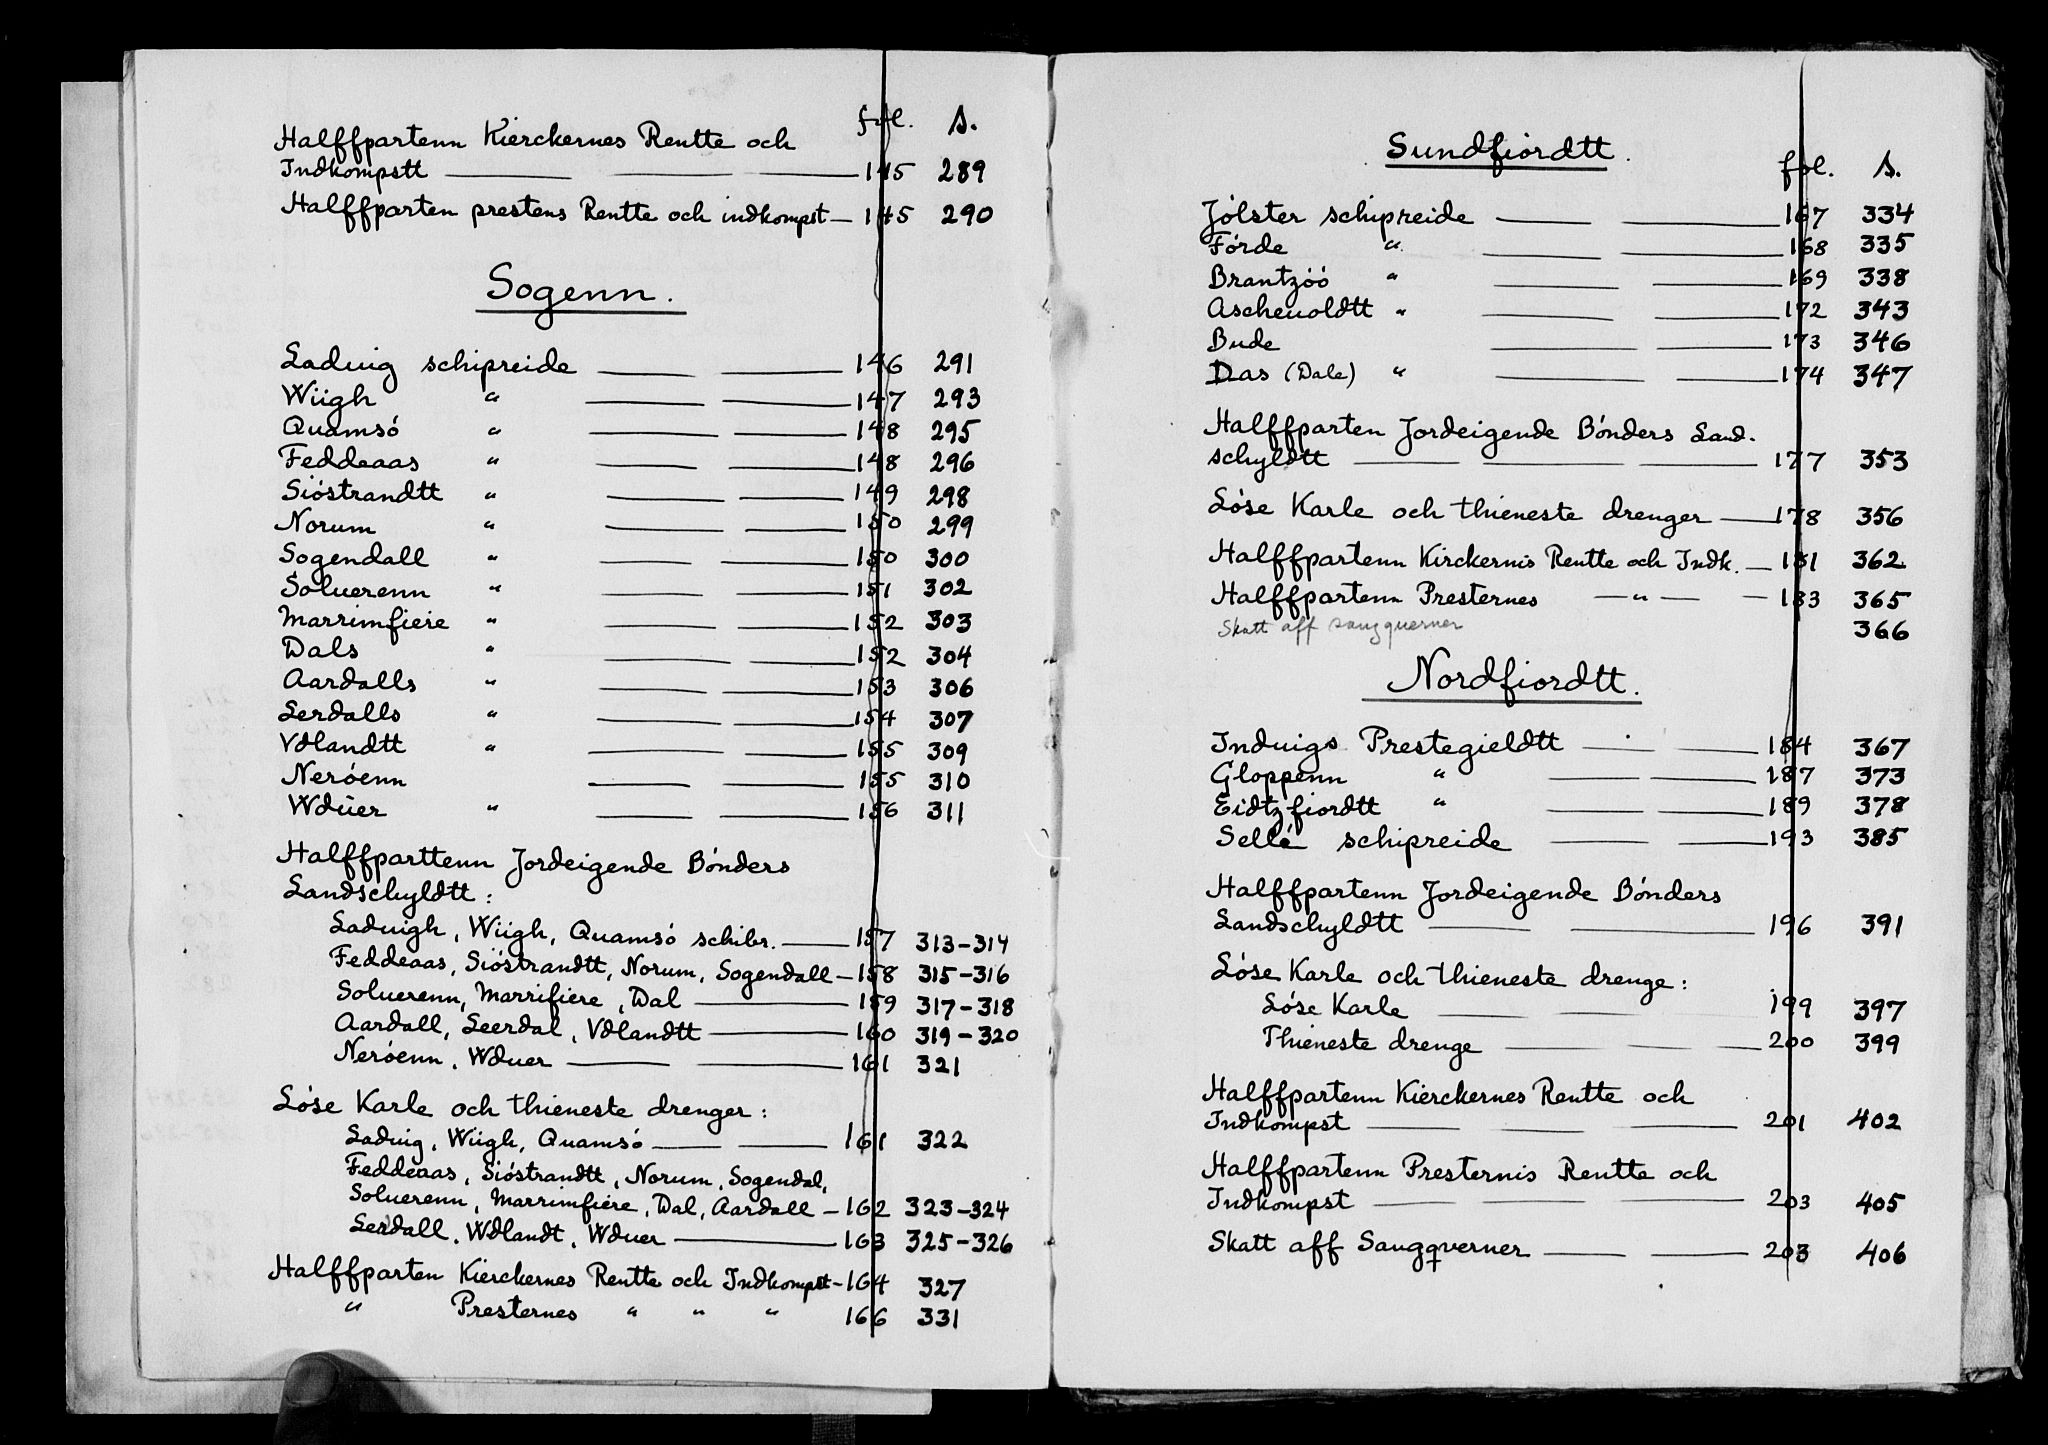 fol. s.
Halffpartenn Kierckernes Rentte och
Indkompstt 145 289
Halffparten prestens Rentte och indkompst 145 290
Sogenn.
Laduig schipreide 146 291
Wiigh " 147 293
Quamsó " 148 295
Feddeaas " 148 296
Sióstrandtt " 149 298
Norum " 150 299
Sogendall " 150 300
Soluerenn " 151 302
Marrimfiere " 152 303
Dals " 152 304
Aardalls " 153 306
Lerdalls " 154 307
Vdlandtt " 155 309
Neróenn 155 310
Wduer " 156 311
Halffparttenn Jordeigende Bónders
Landschyldtt :
Laduigh, Wiigh, Quamsó schibr. 157 313-314
Feddeaas, Sióstrandtt, Norum, Sogendall 158 315-316
Soluerenn, Marrifiere, Dal 159 317-318
Aardall, Leerdal, Vdlandtt 160 319-320
Neróenn, Wduer 161 321
Lóse Karle och thieneste drenger :
Laduig, Wiigh, Quamsó 161 322
Feddeaas, Sióstrandtt, Norum, Sogendal,
Soluerenn, Marrimfiere, Dal, Aardall 162 323-324
Lerdall, Wdlandt, Wduer 163 325-326
Halffparten Kierckernes Rentte och Indkompst 164 327
" Presternes " " " 166 331
Sundfiordtt.
fol. s.
Jólster schipreide 167 334
Fórde " 168 335
Brantzóó " 169 338
Ascheuoldtt " 172 343
Bude 173 346
Das (Dale) " 174 347
Halffparten Jordeigende Bónders Land-
schyldtt 177 353
Lóse Karle och thieneste drenger 178 356
Halffpartenn Kirckernis Rentte och Indk. 181 362
Halffpartenn Presternes " 183 365
Skatt aff saugquerner 366
Nordfiordtt.
Induigs Prestegieldtt 184 367
Gloppenn " 187 373
Eidtzfiordtt " 189 378
Sellé schipreide 193 385
Halffpartenn Jordeigende Bónders
Landschyldtt 196 391
Lóse Karle och thieneste drenge :
Lóse Karle 199 397
Thieneste drenge 200 399
Halffpartenn Kierckernes Rentte och
Indkompst 201 402
Halffpartenn Presternis Rentte och
Indkompst 203 405
Skatt aff Saugqverner 203 406